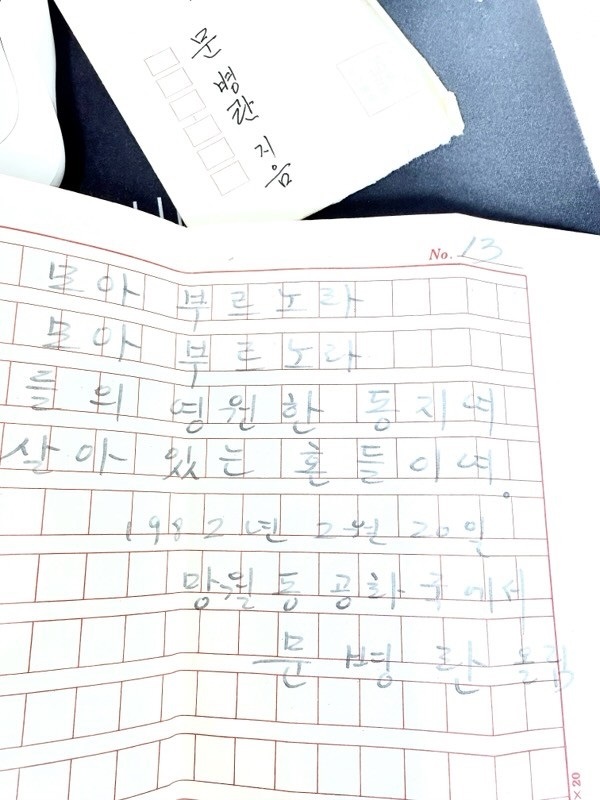 문병란 지음
No. 13
모아 부르노라
모아 부르노라
들의 영원한 동지여
살아 있는 혼들이여.
1982년 2월 20일
망월동 공화국에서
문병란 올림
× 20